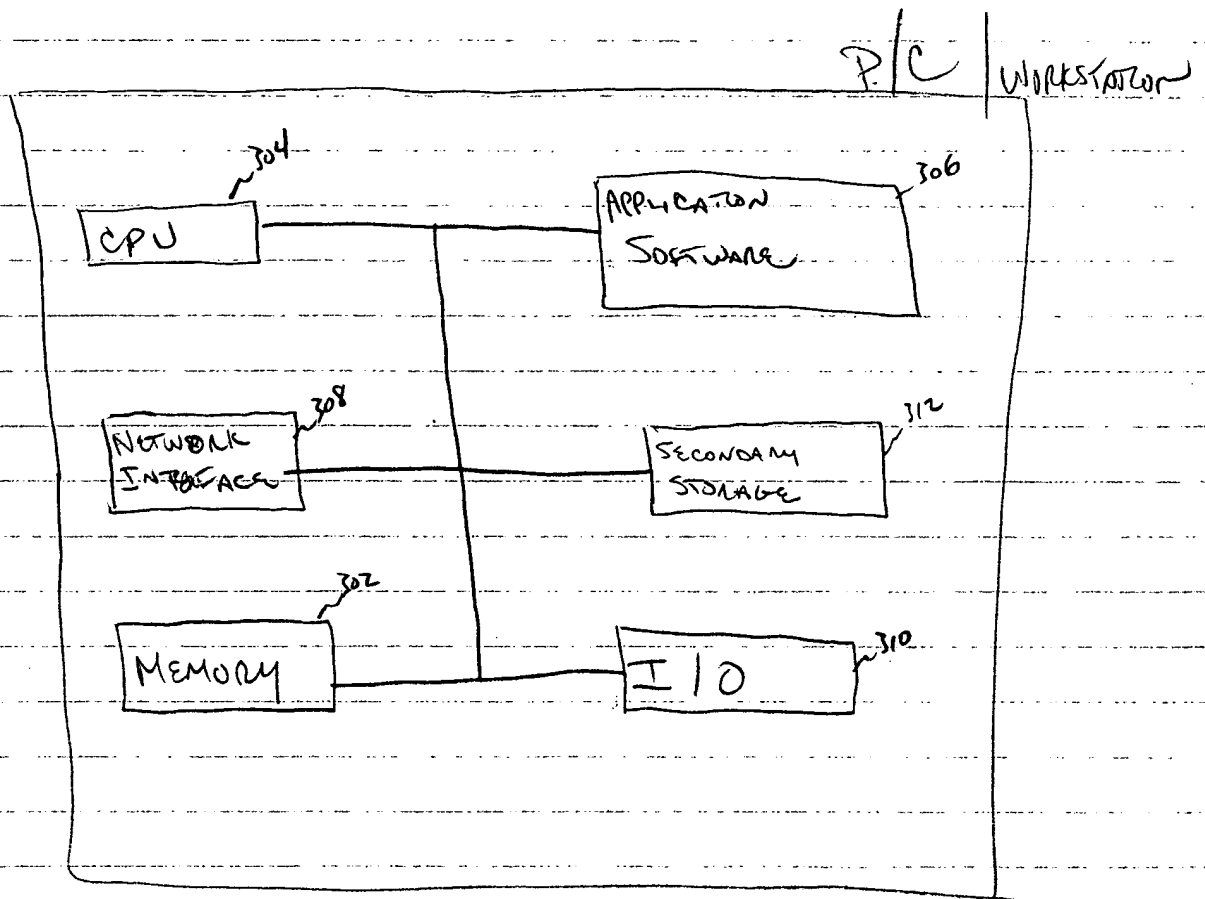 P.C / WORKSTATION
304
CPU
306
APPLICATION
SOFTWARE
308
NETWORK
INTERFACE
312
SECONDARY
STORAGE
302
MEMORY
310
I/O